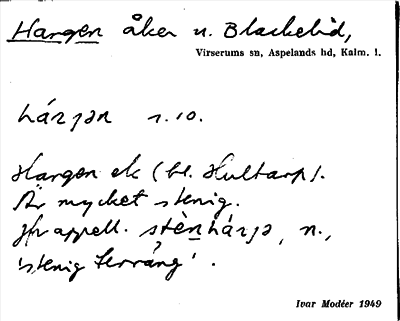 Hargen åker u. Blackelid,
Virserums sn, Aspelands hd, Kalm. l.
hárjən 1.10.
Hargen ek (bl. Hultarp).
Är mycket stenig.
Jfr appell. stènhárjə, n.,
'stenig terräng'.
Ivar Modéer 1949